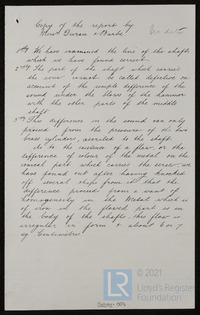 Copy of the report by
Messrs Duran & Barbé
1st We have examined the line of the shafts
which we have found correct.
2nd The part of the shaft which carries
the screw cannot be called defective on
account of the simple difference of the
sound under the blows of the hammer
with the other parts of the middle
shaft.
3rd This difference in the sound can only
proceed from the pressure of the two
brass cylinders, encircled to the shaft.
As to the existence of a flaw or the
difference of colour of the metal on the
conical part which carries the screw, we
have found out after having knocked
off several chips from it that the
difference proceed from a want of
homogeneity in the Metal which is
of iron and the flawed part is on
the body of the shaft; this flaw is
irregular in form & about 6 or 7
sq Centimetres
© 2021
Lloyd's Register
Foundation